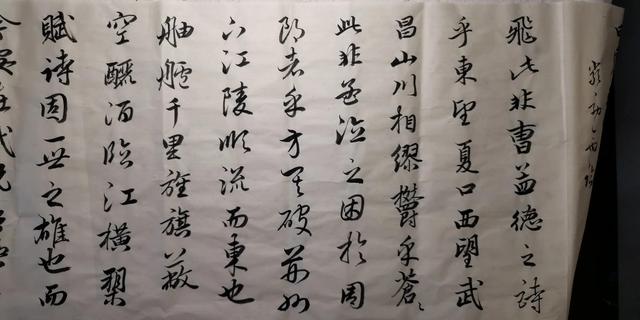 飛此非曹孟德之詩
乎東望夏口西望武
昌山川相繆欝乎蒼〻
此非孟德之困於周
郎者乎方其破荊州
下江陵順流而東也
舳艫千里旌旗蔽
空釃酒臨江橫槊
賦詩固一世之雄也而
今安在哉況吾